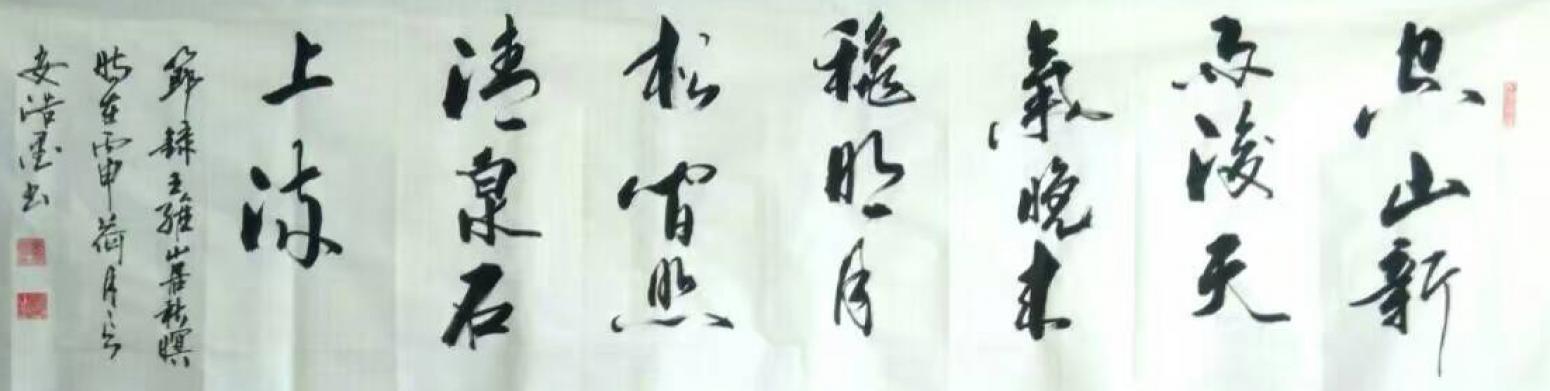 空山新
雨後天
氣晚来
穐明月
松间照
清泉石
上流
節録王維山居秋暝
時在丙申荷月
安浩墨书